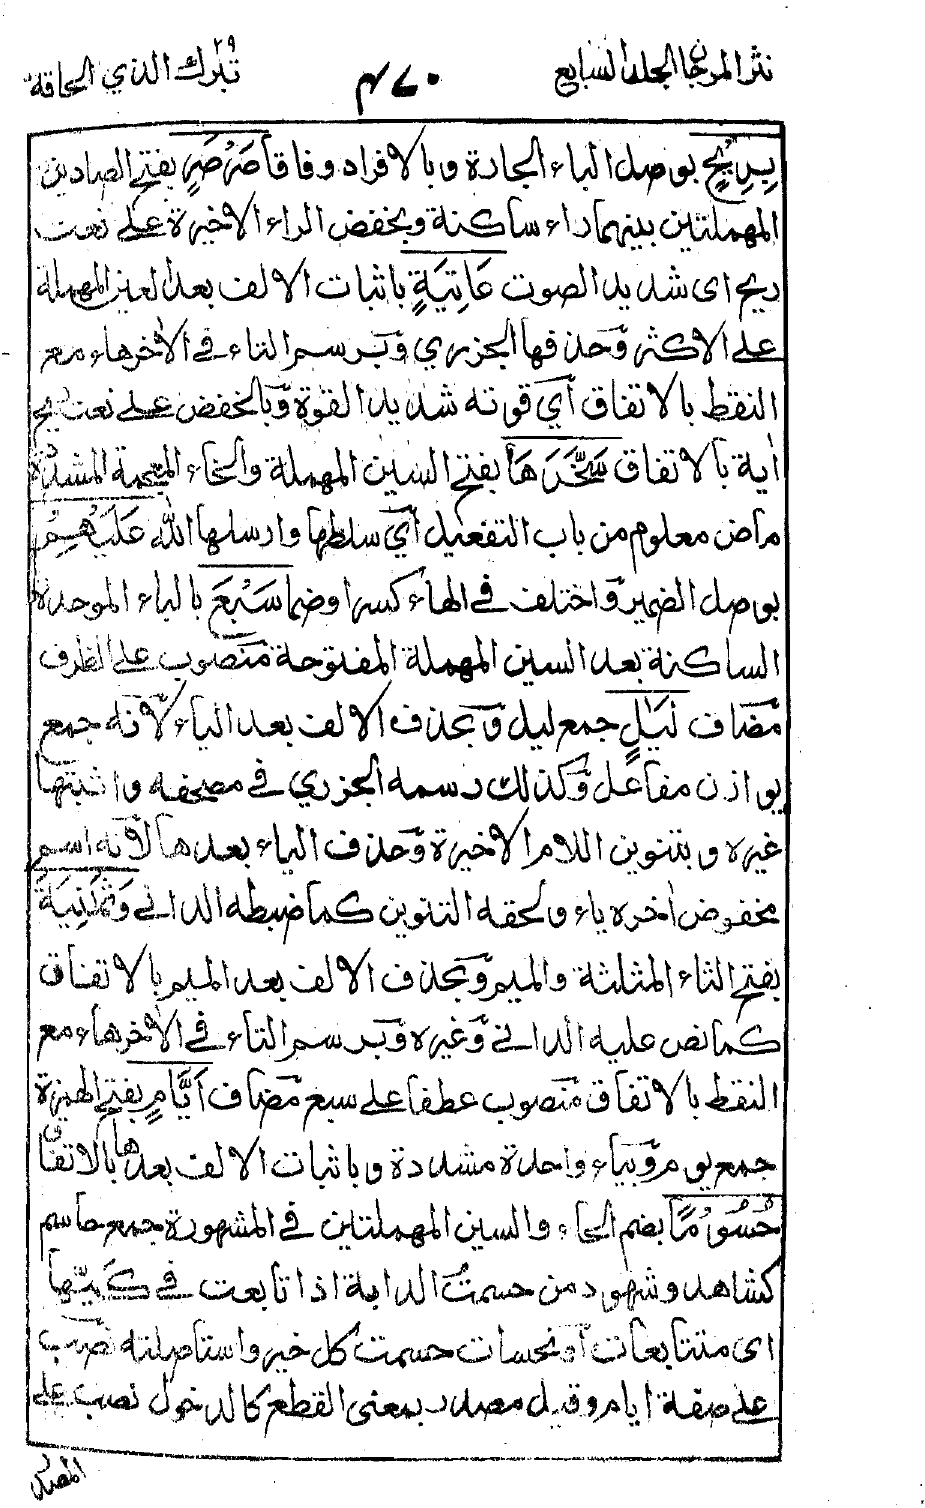 نثر المرجان الجلد السابع
٤٧٠
تبرك الذي ٢٩ الحاقة
بِرِيْحٍ بوصل الباء الجارة و بالافراد وفاقا صَرْصَرٍ بفتح الصادين
المهملتين بينهما راء ساكنة و بخفض الراء الاخيرة على نعت
ريح اى شديد الصوت عَاتِيَةٍ باثبات الالف بعد العين المهملة
على الاكثر وَحذفها الجزري وَبرسم التاء في الاٰخر هاء مع
النقط بالاتفاق اَي قوته شديد القوة وَبالخفض على نعت ريح
اٰية بالاتفاق سَخَّرَهَا بفتح السين المهملة والخاء المعجمة المشددة
ماض معلوم من باب التفعيل اَي سلطها وارسلها الله عَلَيْهِمْ
بوصل الضمير وَاختلف في الهاء كسرا وضما سَبْعَ بالباء الموحدة
الساكنة بعد السين المهملة المفتوحة منصوب على الظرف
مضاف لَيَالٍ جمع ليل وَبحذف الالف بعد الياء لاَنه جمع
يوازن مفاعل وَكذلك رسمه الجزري في مصحفه واثبتها
غيره و بتنوين اللام الاخيرة وَحذف الياء بعدها لاَنه اسم
مخفوض اٰخره ياء ولحقه التنوين كما ضبطه الداني وَثَمٰنِيَةَ
بفتح الثاء المثلثة والميم وَبحذف الالف بعد الميم بالاتفاق
كما نص عليه الداني وَغيره وَبرسم التاء في الاٰخر هاء مع
النقط بالاتفاق منصوب عطفا على سبع مضاف اَيَّامٍ بفتح الهمزة
جمع يوم وَبياء واحدة مشددة و باثبات الالف بعدها بالاتفاق
حُسُوْمًا بضم الحاء والسين المهملتين في المشهورة جمع حاسم
كشاهد و شهود من حسمت الدابة اذا تابعت في كيّها
اى متتابعات اَو نحسات حسمت كل خير واستاصلته نصب
على صفة ايام وقيل مصدر بمعنى القطع كالدخول نصب على
المصدر